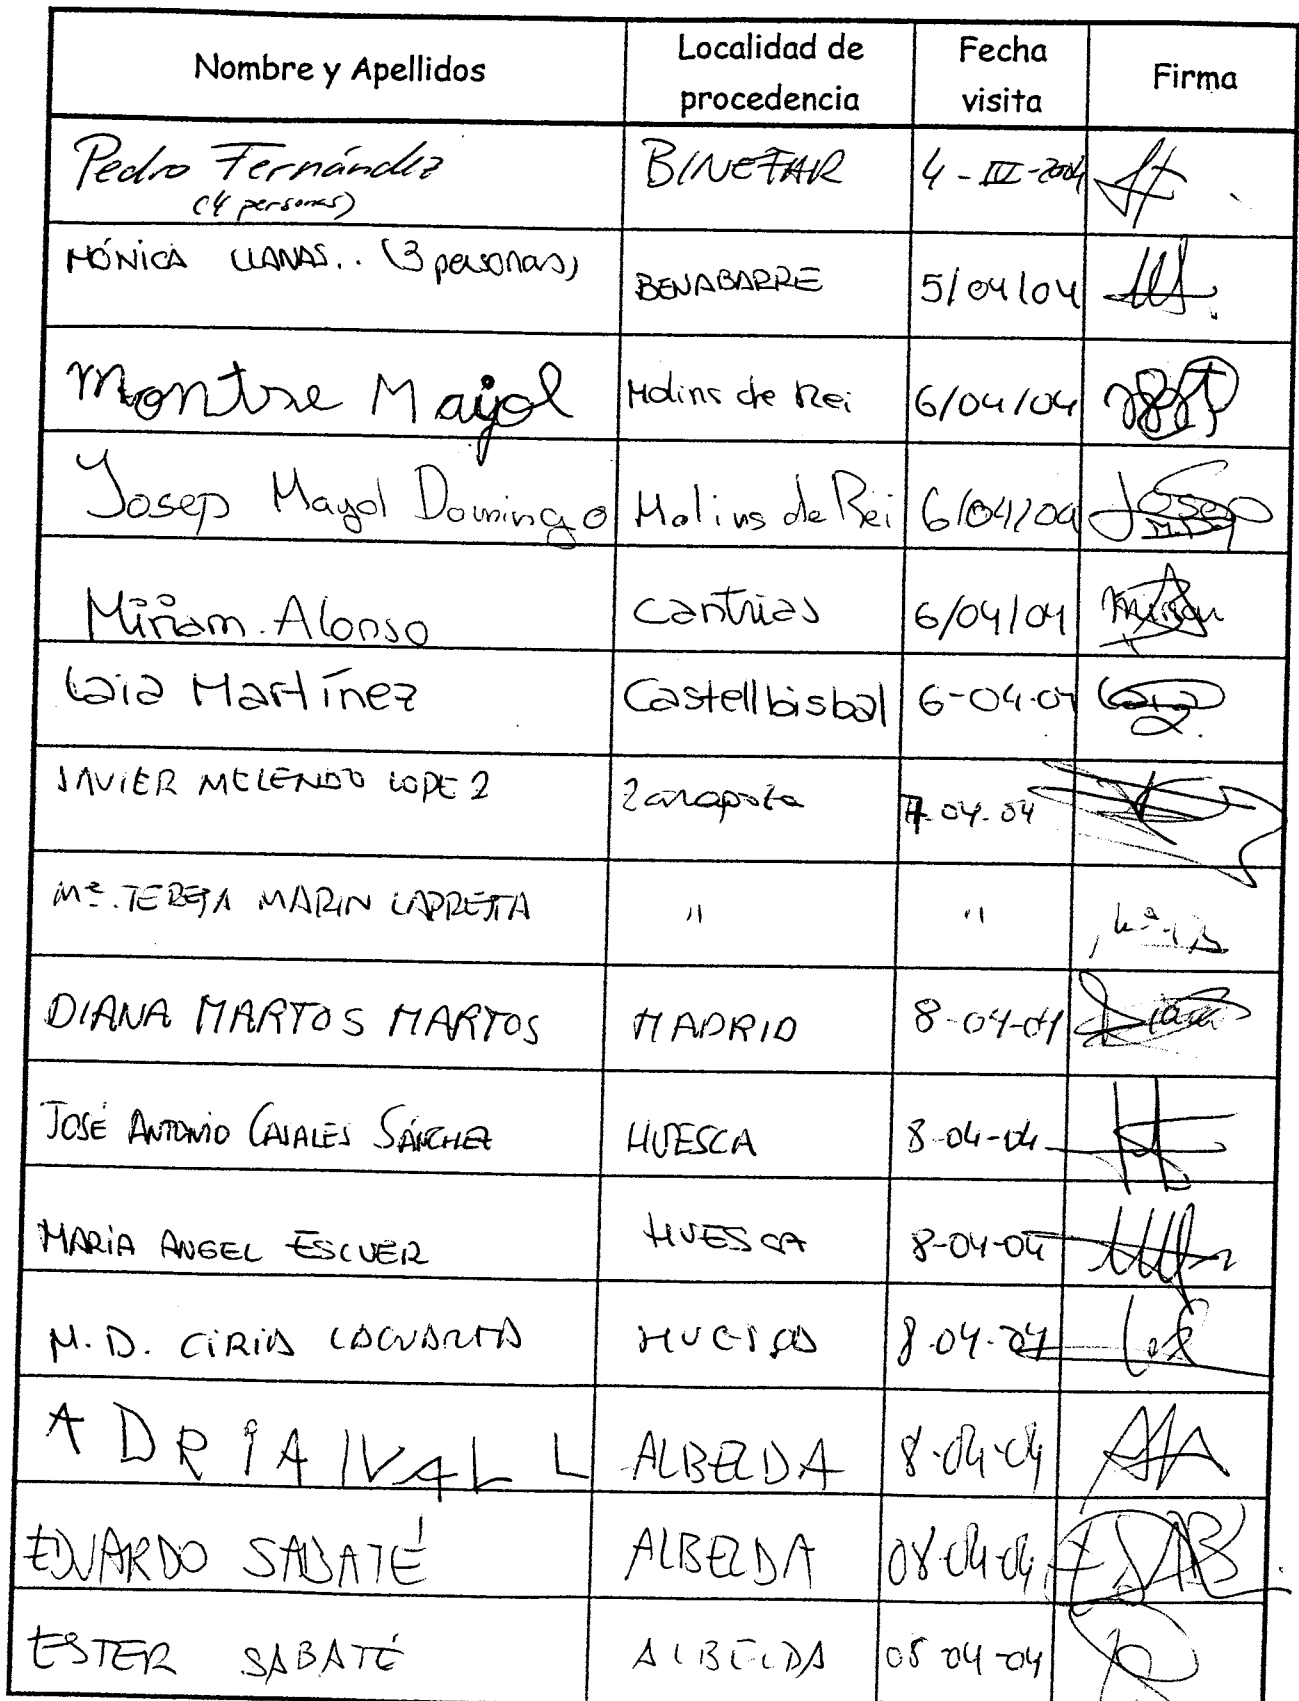 Nombre y Apellidos Localidad de procedencia Fecha visita Firma
Pedro Fernández BINEFAR 4-IV-2004
(4 personas)
MÓNICA LLANAS.. (3 personas) BENABARRE 5/04/04
Montse Mayol Molins de Rei 6/04/04
Josep Mayol Domingo Molins de Rei 6/04/04 Josep
Míriam Alonso 6/04/04 Míriam
Laia Martínez Castellbisbal 6-04-04 Laia
JAVIER MELENDO LOPEZ Zaragoza 7-04-04
Mª TERESA MARIN " "
DIANA MARTOS MARTOS MADRID 8-04-04 Diana
JOSÉ ANTONIO CASALES SÁNCHEZ HUESCA 8-04-04
MARÍA ANGEL ESCUER HUESCA 8-04-04
M.D. CIRIA HUESCA 8-04-04
ADRIÀ VALL ALBELDA 8-04-04
EDUARDO SABATÉ ALBELDA 08-04-04
ESTER SABATÉ ALBELDA 08-04-04